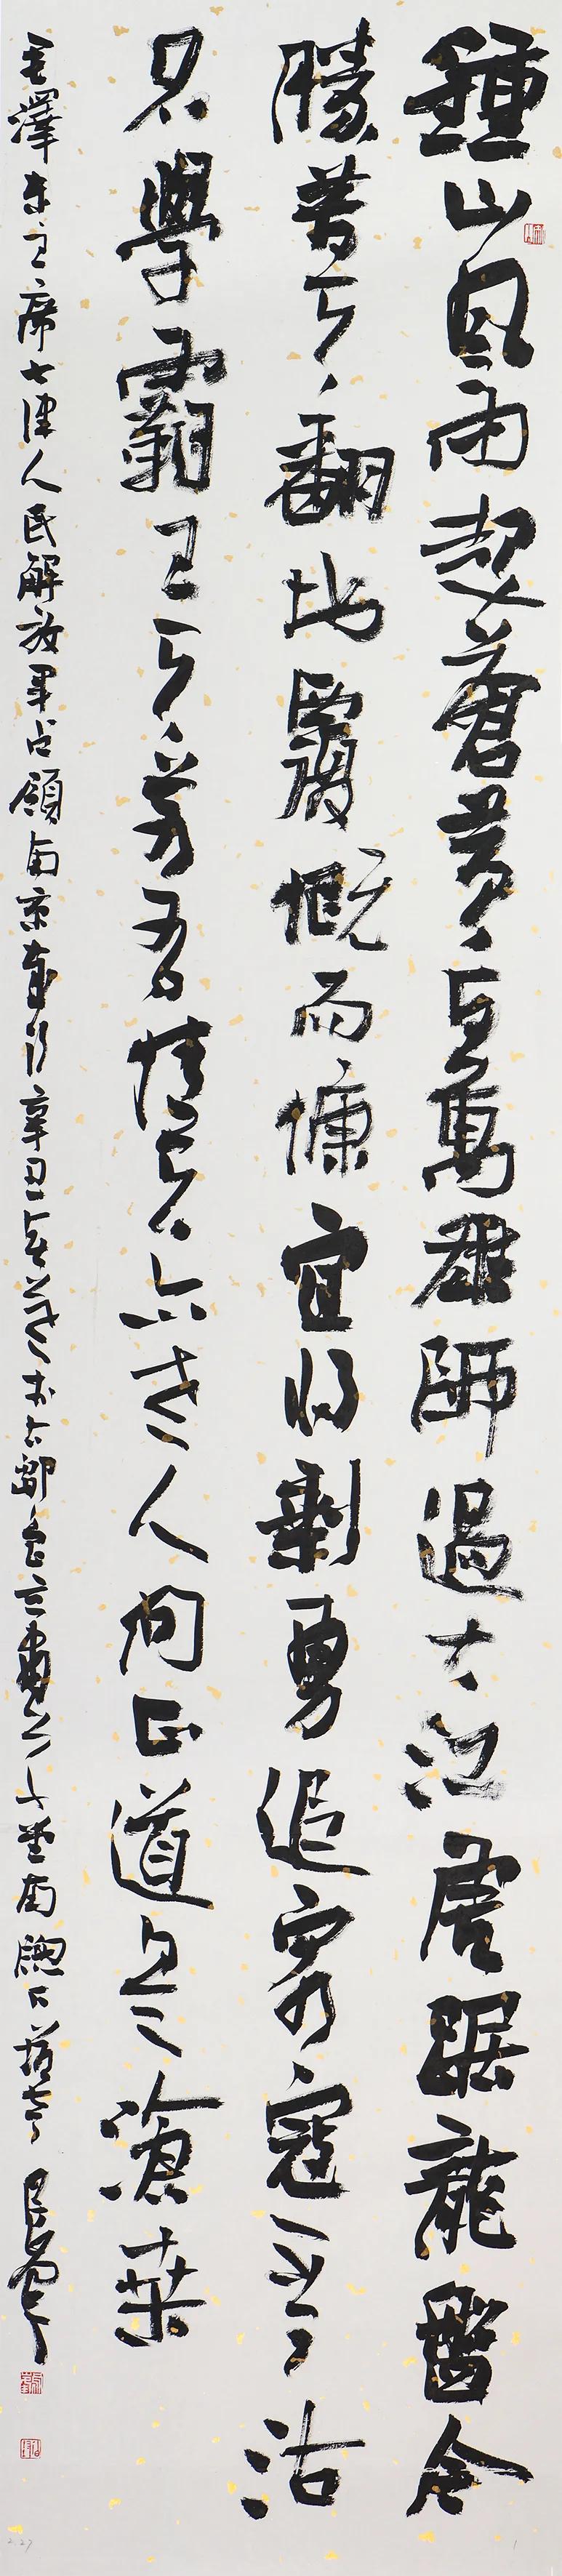 鍾山風雨起蒼黃百萬雄師過大江虎踞龍盤今
勝昔天翻地覆慨而慷宜將剩勇追窮寇不可沽
名學霸王天若有情天亦老人間正道是滄桑
毛澤東主席七律人民解放軍占領南京 辛丑 南牕下